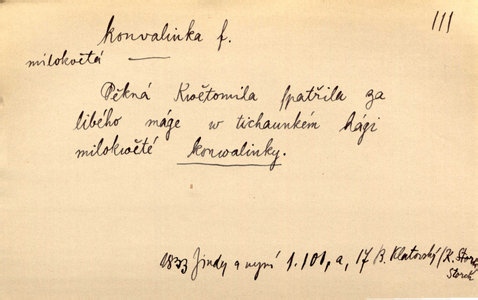 111
konvalinka f.
milokvětá
Pěkná Kwětomila spatřila za
libého máge w tichaunkém hági
milokwěté konwalinky.
1833 Jindy a nyní 1.101, a, 17 /B. Klatovský/K. Storch
Storch